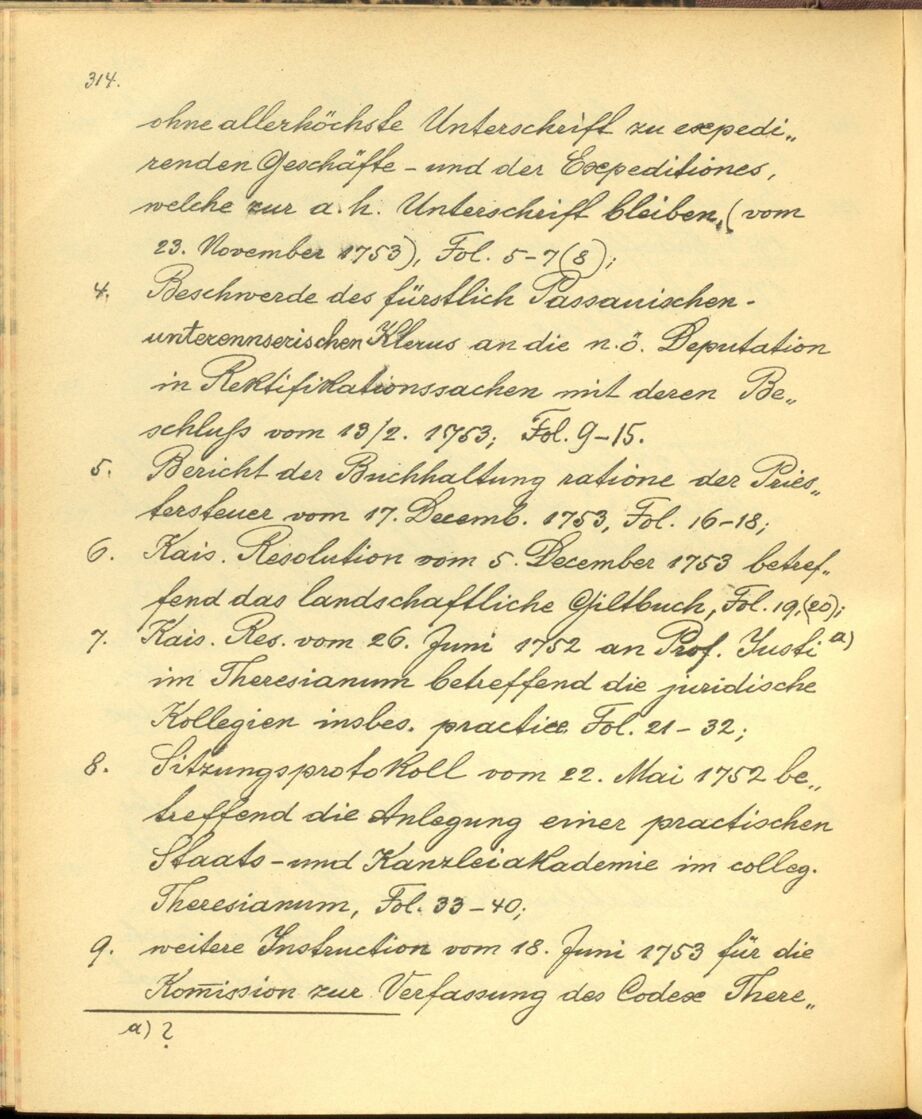 314.
ohne allerhöchste Unterschrift zu expedi„
renden Geschäfte - und der Expeditiones,
welche zur a. h. Unterschrift bleiben, (vom
23. November 1753), Fol. 5-7(8);
4. Beschwerde des fürstlich Passauischen -
unterennserischen Klerus an die n.ö. Deputation
in Rektifikationssachen mit deren Be„
schluß vom 13/2. 1753; Fol. 9-15.
5. Bericht der Buchhaltung ratione der Pries„
tersteuer vom 17. Decemb. 1753, Fol. 16-18;
6. Kais. Resolution vom 5. December 1753 betref„
fend das landschaftliche Giltbuch, Fol. 19,(20);
7. Kais. Res. vom 26. Juni 1752 an Prof. Justi a)
im Theresianum betreffend die juridische
Kollegien insbes. practice Fol. 21-32;
8. Sitzungsprotokoll vom 22. Mai 1752 be„
treffend die Anlegung einer practischen
Staats - und Kanzleiakademie im colleg.
Theresianum, Fol. 33-40;
9. weitere Instruction vom 18. Juni 1753 für die
Kom̅ission zur Verfassung des Codex There„
a) ?